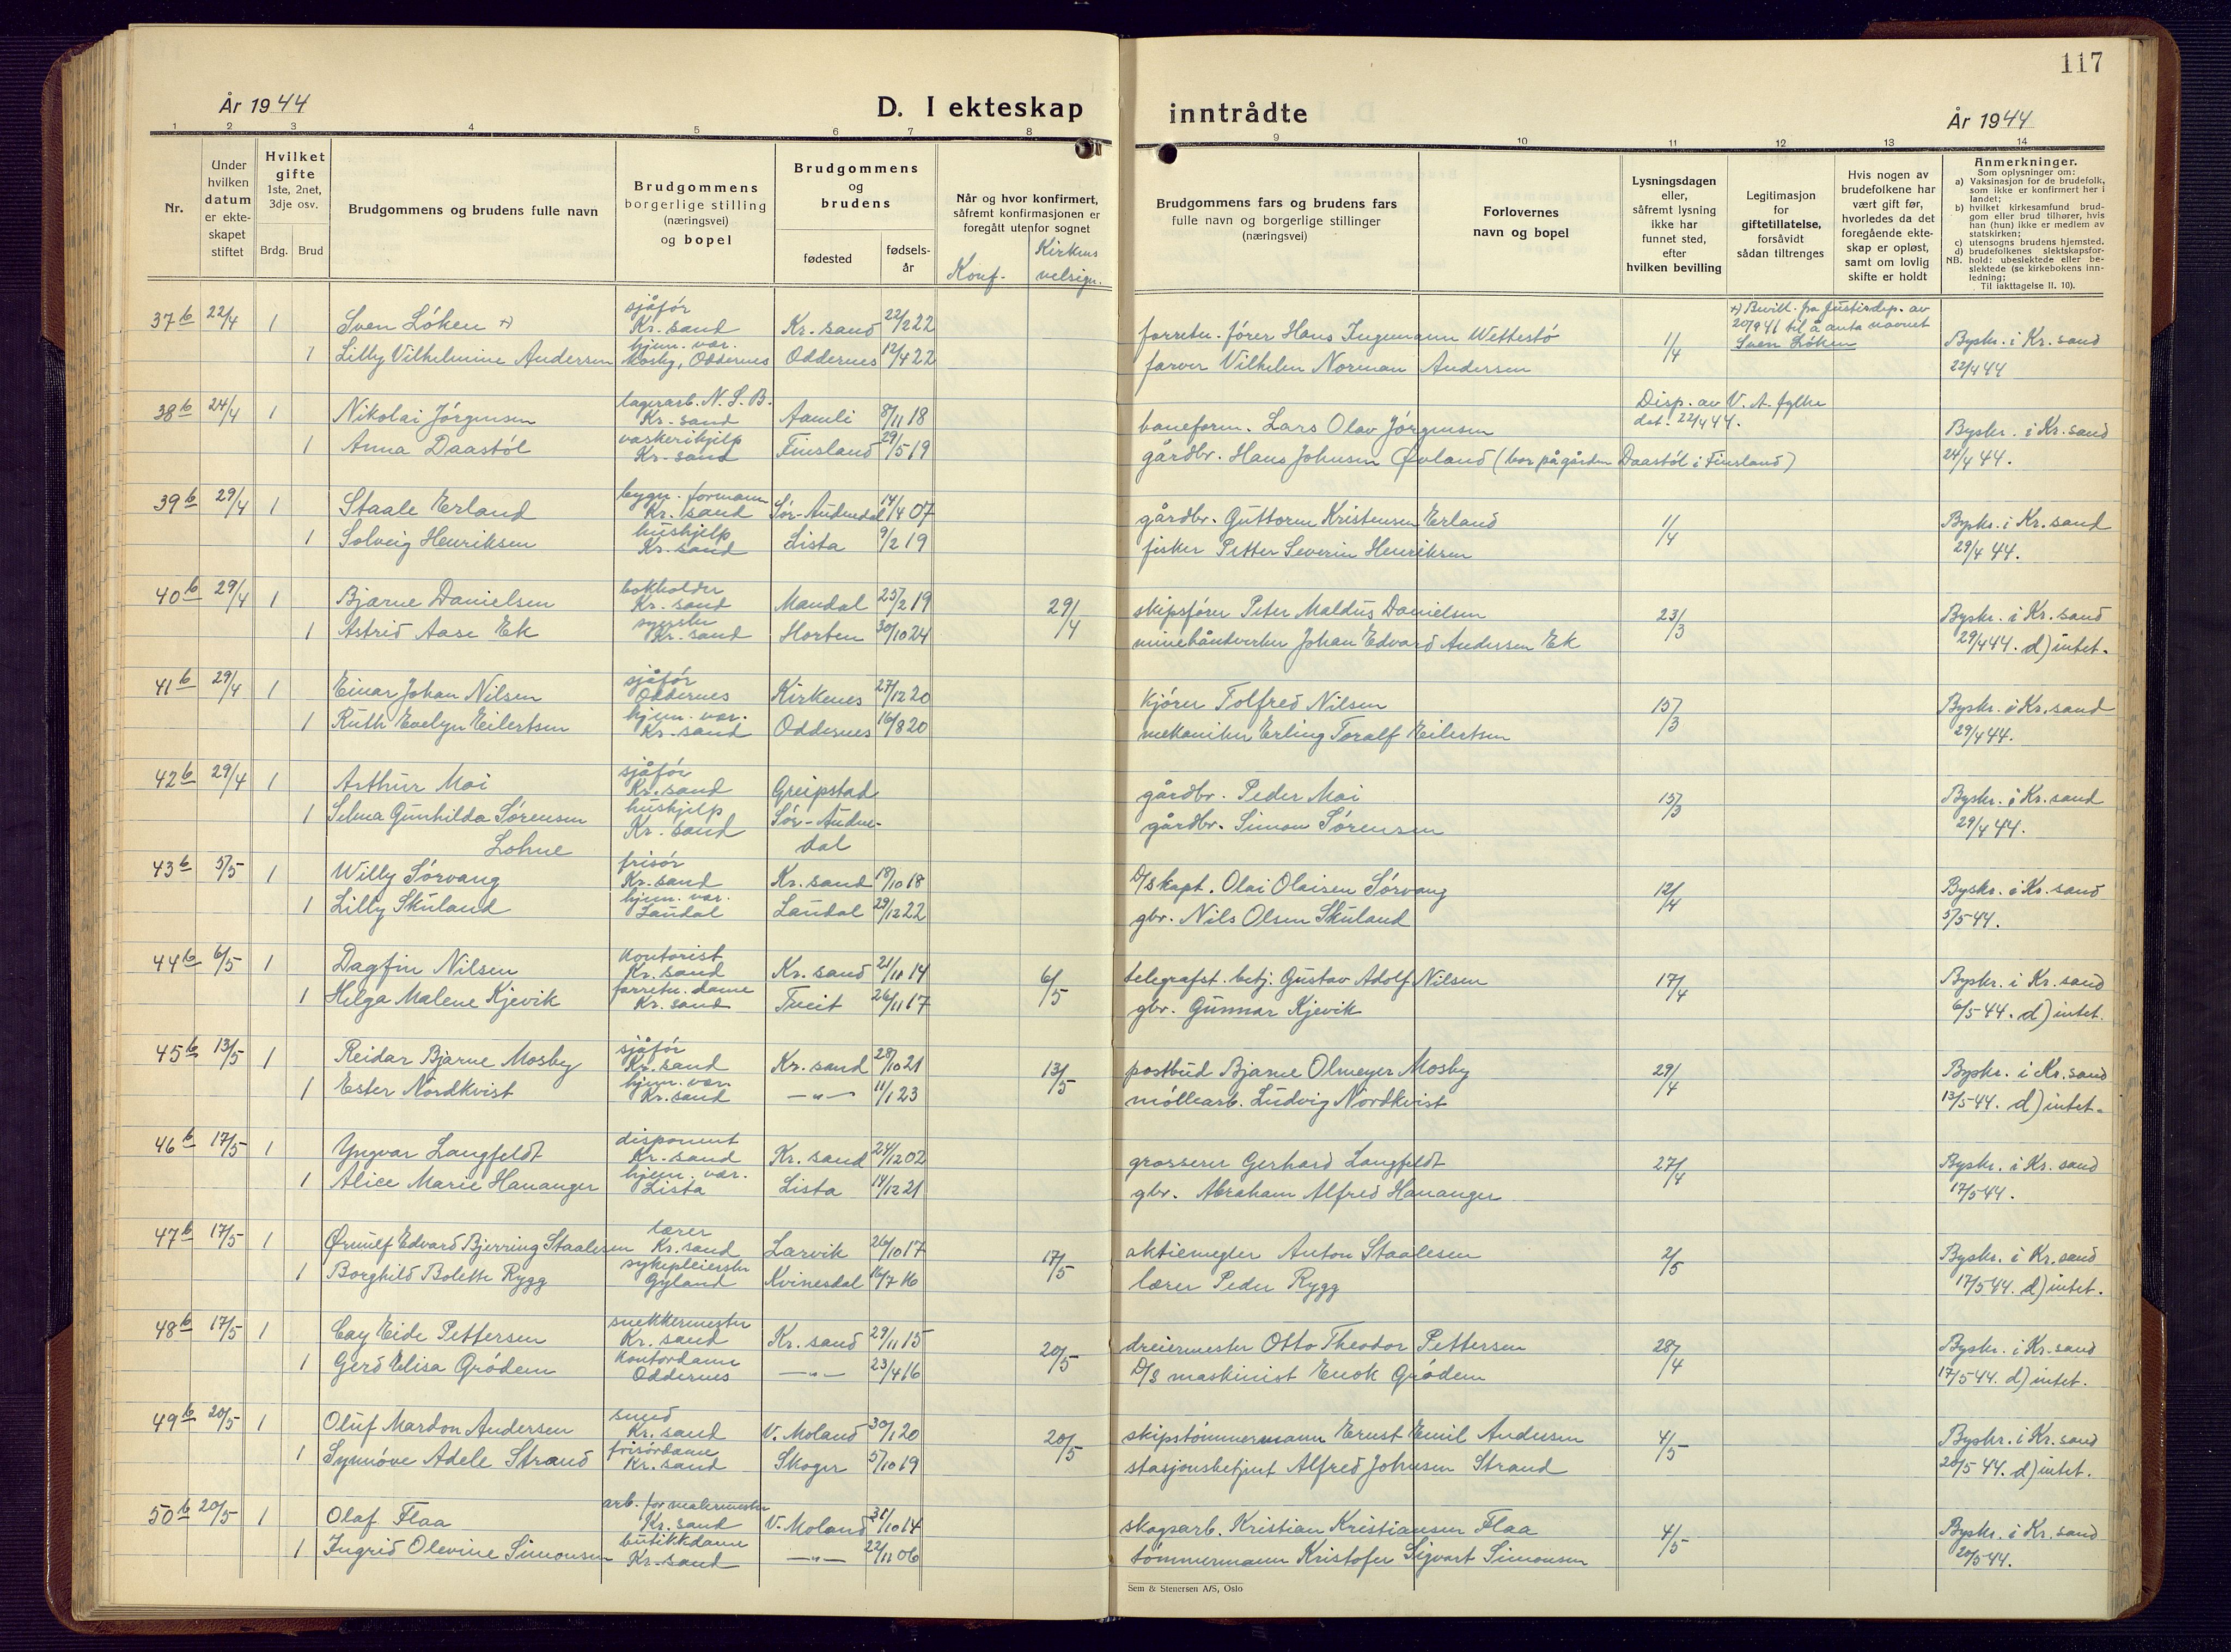 117
År 1944
D. I ekteskap inntrådte
År 1944
1 2 3 4 5 6 7 8 9 10 11 12 13 14
Nr.
Under hvilken datum er ekteskapet stiftet
Hvilket gifte 1ste, 2net, 3dje osv.
Brdg. Brud
Brudgommens og brudens fulle navn
Brudgommens borgerlige stilling (næringsvei) og bopel
Brudgommens og brudens
fødested
fødselsår
Når og hvor konfirmert, såfremt konfirmasjonen er foregått utenfor sognet
Konf. Kirkens velsign.
Brudgommens fars og brudens fars fulle navn og borgerlige stillinger (næringsvei)
Forlovernes navn og bopel
Lysningsdagen eller, såfremt lysning ikke har funnet sted, efter hvilken bevilling
Legitimasjon for giftetillatelse, forsåvidt sådan tiltrenges
Hvis nogen av brudefolkene har vært gift før, hvorledes da det foregående ekteskap er opløst, samt om lovlig skifte er holdt
Anmerkninger.
Som oplysninger om:
a) Vaksinasjon for de brudefolk, som ikke er konfirmert her i landet;
b) hvilket kirkesamfund brudgom eller brud tilhører, hvis han (hun) ikke er medlem av statskirken;
c) utensogns brudens hjemsted,
d) brudefolkenes slektskapsforhold: ubeslektede eller beslektede (se kirkebokens innledning;
NB. Til iakttagelse II. 10).
37 b 22/4 1 Sven Löken +) sjåför Kr. sand Kr. sand 22/2 22 forretn. förer Hans Ingemann Wettestö 1/4 +) Bevill. fra Justisdep. av 20/9 41 til å anta navnet Sven Löken Byskr. i Kr. sand
1 Lilly Vilhelmine Andersen hjem. vær. Mosby, Oddernes Oddernes 12/4 22 farver Vilhelm Norman Andersen 22/4 44
38 b 24/4 1 Nikolai Jörgensen lagerarb. N.S.B. Kr. sand Aamli 8/11 18 baneform. Lars Olav Jörgensen Disp. av V. A. fylke dat. 22/4 44. Byskr. i Kr. sand
1 Anna Daastöl vaskerihjelp Kr. sand Finsland 29/5 19 gårdbr. Hans Johnsen Øvland (bor på gården Daastöl i Finsland) 24/4 44.
39 b 29/4 1 Staale Erland bygn. formann Kr. sand Sör-Audnedal 14/4 07 gårdbr. Guttorm Kristensen Erland 1/4 Byskr. i Kr. sand
1 Solveig Henriksen hushjelp Kr. sand Lista 9/2 19 fisker Petter Severin Henriksen 29/4 44.
40 b 29/4 1 Bjarne Danielsen bokholder Kr. sand Mandal 25/2 19 29/4 skipsförer Peter Maldus Danielsen 23/3 Byskr. i Kr. sand
1 Astrid Aase Ek syerske Kr. sand Horten 30/10 24 minehåndverker Johan Edvard Andersen Ek 29/4 44. d) intet.
41 b 29/4 1 Einar Johan Nilsen sjåför Oddernes Kirkenes 27/12 20 kjörer Tolfred Nilsen 15/3 Byskr. i Kr. sand
1 Ruth Evelyn Eilertsen hjem. vær. Kr. sand Oddernes 16/8 20 mekaniker Erling Toralf Eilertsen 29/4 44.
42 b 29/4 1 Arthur Moi sjåför Kr. sand Greipstad gårdbr. Peder Moi 15/3 Byskr. i Kr. sand
1 Selma Gunhilda Sørensen Lohne hushjelp Kr. sand Sör-Audnedal gårdbr. Simon Sørensen 29/4 44.
43 b 5/5 1 Willy Sörvang frisör Kr. sand Kr. sand 18/10 18 D/s kapt. Olai Olaisen Sörvang 12/4 Byskr. i Kr. sand
1 Lilly Skuland hjem. vær. Laudal Laudal 29/12 22 gbr. Nils Olsen Skuland 5/5 44.
44 b 6/5 1 Dagfin Nilsen kontorist Kr. sand Kr. sand 21/11 14 6/5 telegrafst. betj. Gustav Adolf Nilsen 17/4 Byskr. i Kr. sand
1 Helga Malene Kjevik forretn. dame Kr. sand Tveit 26/11 17 gbr. Gunnar Kjevik 6/5 44. d) intet.
45 b 13/5 1 Reidar Bjarne Mosby sjåför Kr. sand Kr. sand 28/10 21 13/5 postbud Bjarne Olmeyer Mosby 29/4 Byskr. i Kr. sand
1 Ester Nordkvist hjem. vær. Kr. sand —"— 11/1 23 möllearb. Ludvig Nordkvist 13/5 44. d) intet.
46 b 17/5 1 Yngvar Langfeldt disponent Kr. sand Kr. sand 24/12 02 grosserer Gerhard Langfeldt 27/4 Byskr. i Kr. sand
1 Alice Marie Hananger hjem. vær. Lista Lista 14/12 21 gbr. Abraham Alfred Hananger 17/5 44.
47 b 17/5 1 Ørnulf Edvard Bjerring Staalesen lærer Kr. sand Larvik 26/10 17 17/5 aktiemegler Anton Staalesen 2/5 Byskr. i Kr. sand
1 Borghild Bolette Rygg sykepleierske Gyland Kvinesdal 16/7 16 lærer Peder Rygg 17/5 44. d) intet.
48 b 17/5 1 Cay Eide Pettersen snekkermester Kr. sand Kr. sand 29/11 15 20/5 dreiermester Otto Theodor Pettersen 28/4 Byskr. i Kr. sand
1 Gerd Elisa Grödem kontordame Oddernes —"— 23/4 16 D/s maskinist Enok Grödem 17/5 44. d) intet.
49 b 20/5 1 Oluf Mardon Andersen smed Kr. sand V. Moland 30/1 20 20/5 skipstömmermann Ernst Emil Andersen 4/5 Byskr. i Kr. sand
1 Synnöve Adele Strand frisördame Kr. sand Skoger 5/10 19 stasjonsbetjent Alfred Johnsen Strand 20/5 44. d) intet.
50 b 20/5 1 Olaf Flaa arb. for malermester Kr. sand V. Moland 31/10 14 skogsarb. Kristian Kristiansen Flaa 4/5 Byskr. i Kr. sand
1 Ingrid Olevine Simonsen butikkdame Kr. sand —"— 22/11 06 tömmermann Kristofer Sigvart Simonsen 20/5 44.
Sem & Stenersen A/S, Oslo